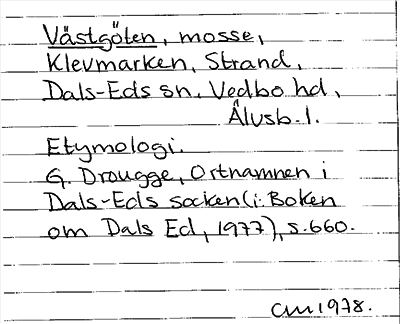 Västgöten, mosse,
Klevmarken, Strand,
Dals-Eds sn, Vedbo hd,
Älvsb. l.
Etymologi.
G. Drougge, Ortnamnen i
Dals-Eds socken (i: Boken
om Dals Ed, 1977), s. 660.
CM 1978.